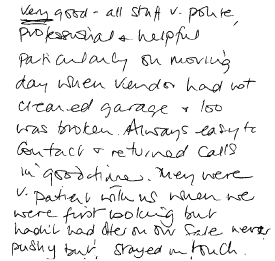 very good - all staff v. polite,
professional & helpful
particularly on moving
day when vendor had not
cleared garage & loo
was broken. Always easy to
contact & returned calls
in good time. They were
v. patient with us when we
were first looking but
hadn't had offer on our sale never
pushy but, stayed in touch.